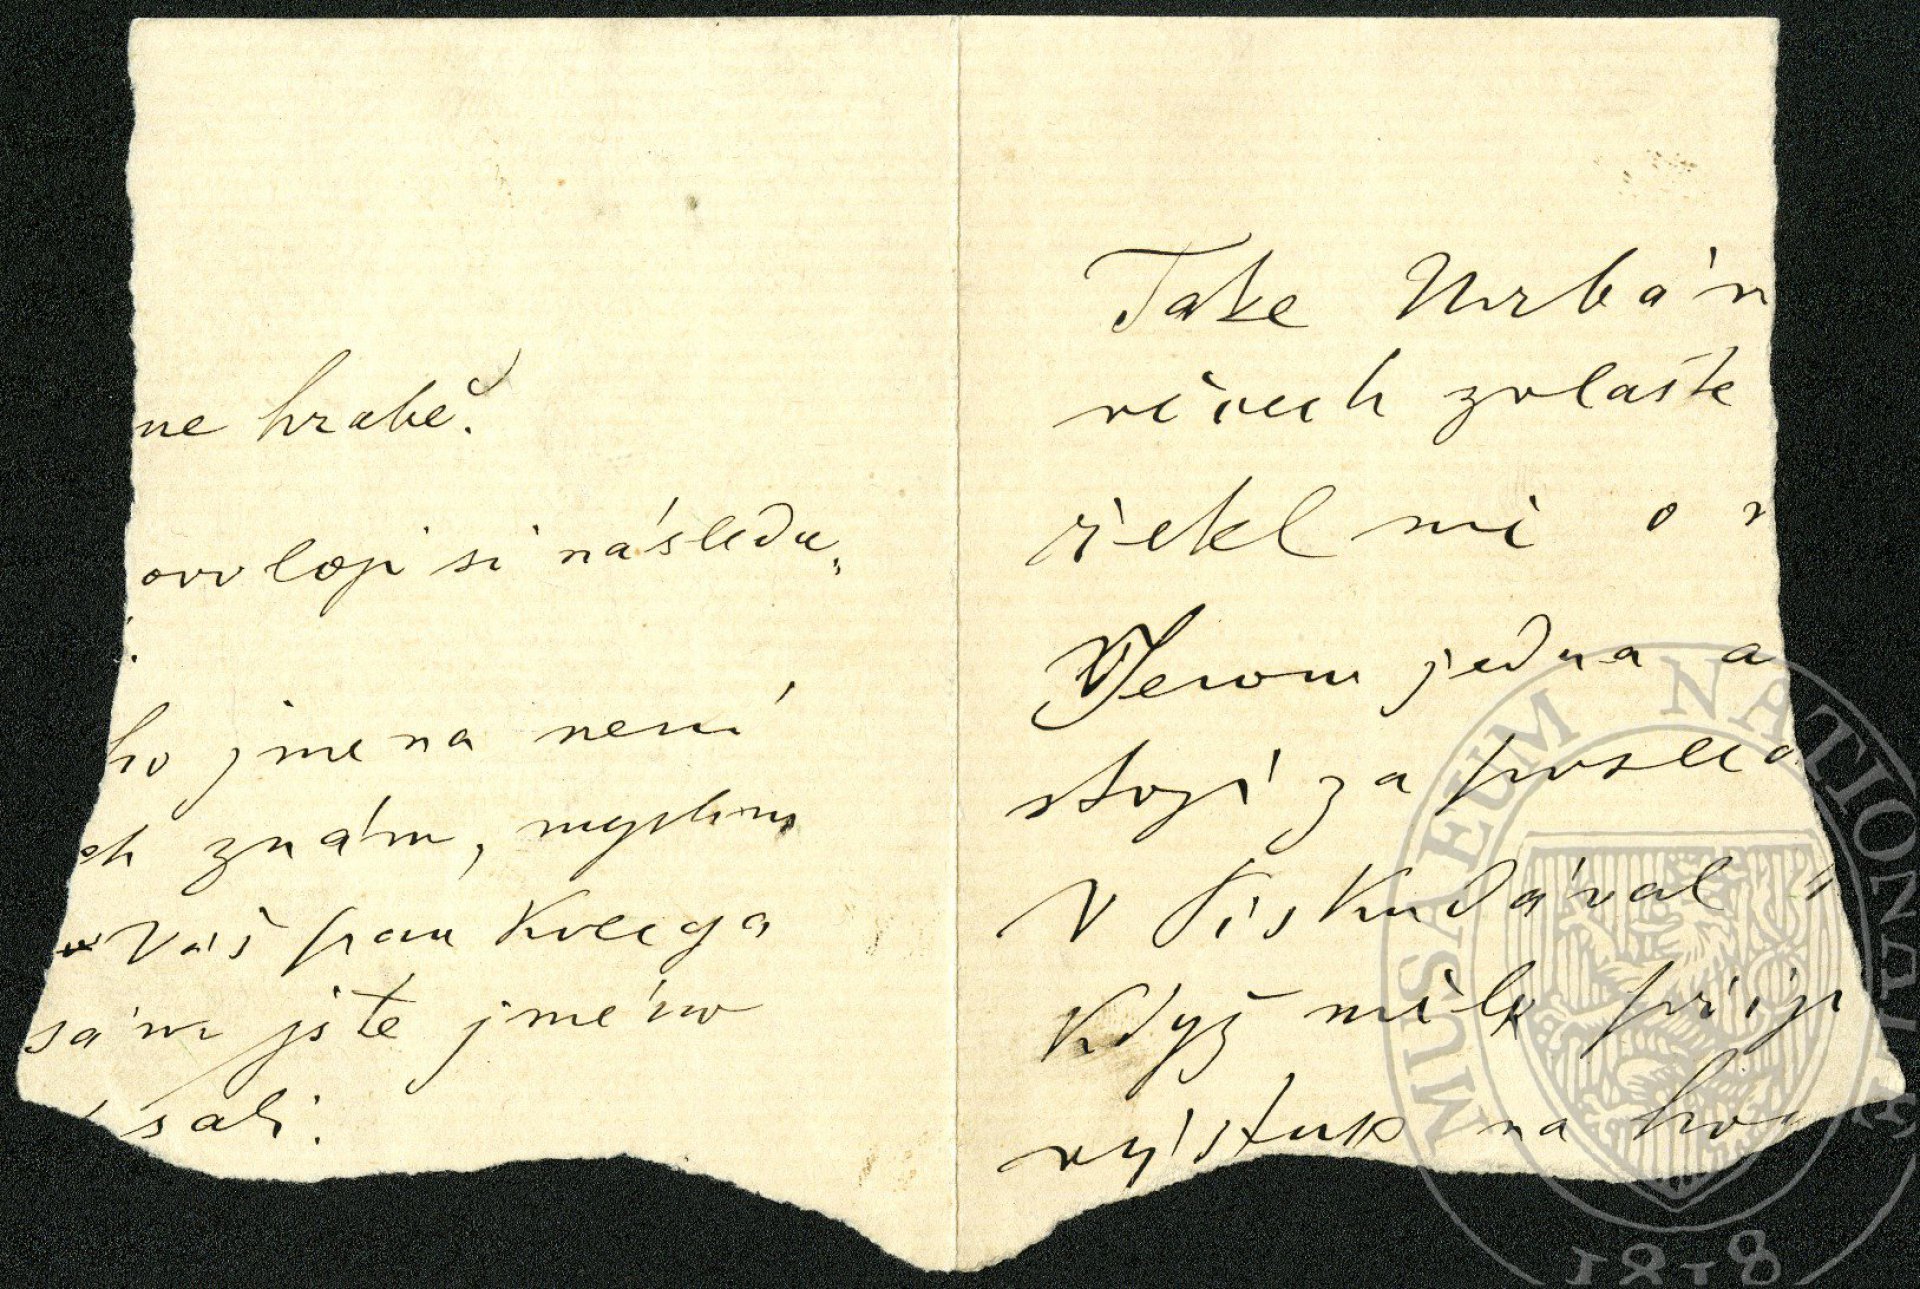 ne hrabě.
ovoloji si následu„
ho jmena není
ch znám, myslim
Váš pan Kollega
sám jste jméno
sali.
Take Urbán
věcech zvlaště
řekl mi o
Jerom jedna a
stojí za posled
V Písku dával
Když měl přij
výstup na ho
MUSAEUM NATIONALE
1818